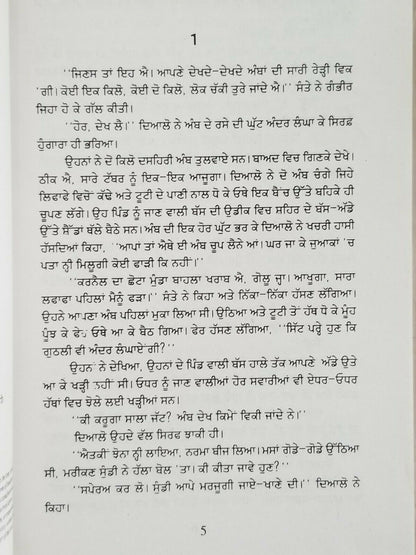 1
‘‘ਜਿਣਸ ਤਾਂ ਇਹ ਐ। ਆਪਣੇ ਦੇਖਦੇ-ਦੇਖਦੇ ਅੰਬਾਂ ਦੀ ਸਾਰੀ ਰੇੜ੍ਹੀ ਵਿਕ
'ਗੀ। ਕੋਈ ਇਕ ਕਿਲੋ, ਕੋਈ ਦੋ ਕਿਲੋ, ਲੋਕ ਚੱਕੀ ਤੁਰੇ ਜਾਂਦੇ ਐ।’’ ਸੰਤੇ ਨੇ ਗੰਭੀਰ
ਜਿਹਾ ਹੋ ਕੇ ਗੱਲ ਕੀਤੀ।
‘‘ਹੋਰ, ਦੇਖ ਲੈ।’’ ਦਿਆਲੇ ਨੇ ਅੰਬ ਦੇ ਰਸੇ ਦੀ ਘੁੱਟ ਅੰਦਰ ਲੰਘਾ ਕੇ ਸਿਰਫ਼
ਹੁੰਗਾਰਾ ਹੀ ਭਰਿਆ।
ਉਹਨਾਂ ਨੇ ਦੋ ਕਿਲੋ ਦਸਹਿਰੀ ਅੰਬ ਤੁਲਵਾਏ ਸਨ। ਬਾਅਦ ਵਿਚ ਗਿਣਕੇ ਦੇਖੇ।
ਠੀਕ ਐ, ਸਾਰੇ ਟੱਬਰ ਨੂੰ ਇਕ-ਇਕ ਆਜੂਗਾ। ਦਿਆਲੇ ਨੇ ਦੋ ਅੰਬ ਚੰਗੇ ਜਿਹੇ
ਲਿਫਾਫੇ ਵਿਚੋਂ ਕੱਢੇ ਅਤੇ ਟੂਟੀ ਦੇ ਪਾਣੀ ਨਾਲ ਧੋ ਕੇ ਓਥੇ ਇਕ ਬੈਂਚ ਉੱਤੇ ਬਹਿਕੇ ਹੀ
ਚੂਪਣ ਲੱਗੇ। ਉਹ ਪਿੰਡ ਨੂੰ ਜਾਣ ਵਾਲੀ ਬੱਸ ਦੀ ਉਡੀਕ ਵਿਚ ਸ਼ਹਿਰ ਦੇ ਬੱਸ-ਅੱਡੇ
ਉੱਤੇ ਸ਼ੈੱਡਾਂ ਥੱਲੇ ਬੈਠੇ ਸਨ। ਅੰਬ ਦੀ ਇਕ ਹੋਰ ਘੁੱਟ ਭਰ ਕੇ ਦਿਆਲੇ ਨੇ ਖਚਰੀ ਹਾਸੀ
ਹੱਸਦਿਆਂ ਕਿਹਾ, ‘‘ਆਪਾਂ ਤਾਂ ਐਥੇ ਈ ਅੰਬ ਚੂਪ ਲੈਨੇ ਆਂ। ਘਰ ਜਾ ਕੇ ਜੁਆਕਾਂ 'ਚ
ਪਤਾ ਨ੍ਹੀ ਮਿਲੂਗੀ ਕੋਈ ਫਾੜੀ ਕਿ ਨਹੀਂ।’’
‘‘ਕਰਨੈਲ ਦਾ ਛੋਟਾ ਮੁੰਡਾ ਬਾਹਲਾ ਖਰਾਬ ਐ, ਗੇਲੂ ਜ੍ਹਾ। ਆਖੂਗਾ, ਸਾਰਾ
ਲਫਾਫਾ ਪਹਿਲਾਂ ਮੈਨੂੰ ਫੜਾ।’’ ਸੰਤੇ ਨੇ ਕਿਹਾ ਅਤੇ ਨਿੱਕਾ-ਨਿੱਕਾ ਹੱਸਣ ਲੱਗਿਆ।
ਉਹਨੇ ਆਪਣਾ ਅੰਬ ਪਹਿਲਾਂ ਮੁਕਾ ਲਿਆ ਸੀ। ਉਠਿਆ ਅਤੇ ਟੂਟੀ ਤੋਂ ਹੱਥ ਧੋ ਕੇ ਮੂੰਹ
ਪੂੰਝ ਕੇ ਫੇਰ ਓਥੇ ਆ ਕੇ ਬੈਠ ਗਿਆ। ਫੇਰ ਹੱਸਣ ਲੱਗਿਆ, ‘‘ਸਿੱਟ ਪਰ੍ਹੇ ਹੁਣ ਕਿ
ਗੁਠਲੀ ਵੀ ਅੰਦਰ ਲੰਘਾਏਂਗੀ?’’
ਉਹਨਾਂ ਨੇ ਦੇਖਿਆ, ਉਹਨਾਂ ਦੇ ਪਿੰਡ ਵਾਲੀ ਬੱਸ ਹਾਲੇ ਤੱਕ ਆਪਣੇ ਅੱਡੇ ਉਤੇ
ਆ ਕੇ ਖੜ੍ਹੀ ਨਹੀਂ ਸੀ। ਓਧਰ ਨੂੰ ਜਾਣ ਵਾਲੀਆਂ ਹੋਰ ਸਵਾਰੀਆਂ ਵੀ ਏਧਰ-ਓਧਰ
ਹੱਥਾਂ ਵਿਚ ਝੋਲੇ ਲਈ ਖੜ੍ਹੀਆਂ ਸਨ।
‘‘ਕੀ ਕਰੂਗਾ ਸਾਲਾ ਜੱਟ? ਅੰਬ ਦੇਖ ਕਿਮੇਂ ਵਿਕੀ ਜਾਂਦੇ ਨੇ।’’
ਦਿਆਲੇ ਉਹਦੇ ਵੱਲ ਸਿਰਫ ਝਾਕੀ ਹੀ।
‘‘ਐਤਕੀਂ ਝੋਨਾ ਨ੍ਹੀ ਲਾਇਆ, ਨਰਮਾ ਬੀਜ ਲਿਆ। ਮਸਾਂ ਗੋਡੇ-ਗੋਡੇ ਉੱਠਿਆ
ਸੀ, ਮਰੀਕਣ ਸੁੰਡੀ ਨੇ ਹੱਲਾ ਬੋਲ 'ਤਾ। ਕੀ ਕੀਤਾ ਜਾਵੇ ਹੁਣ?’’
‘‘ਸਪੇਰਅ ਕਰ ਲੋ। ਸੁੰਡੀ ਆਪੇ ਮਰਜੂਗੀ ਜਾਏ-ਖਾਣੇ ਦੀ।’’ ਦਿਆਲੋ ਨੇ
ਕਿਹਾ।
5